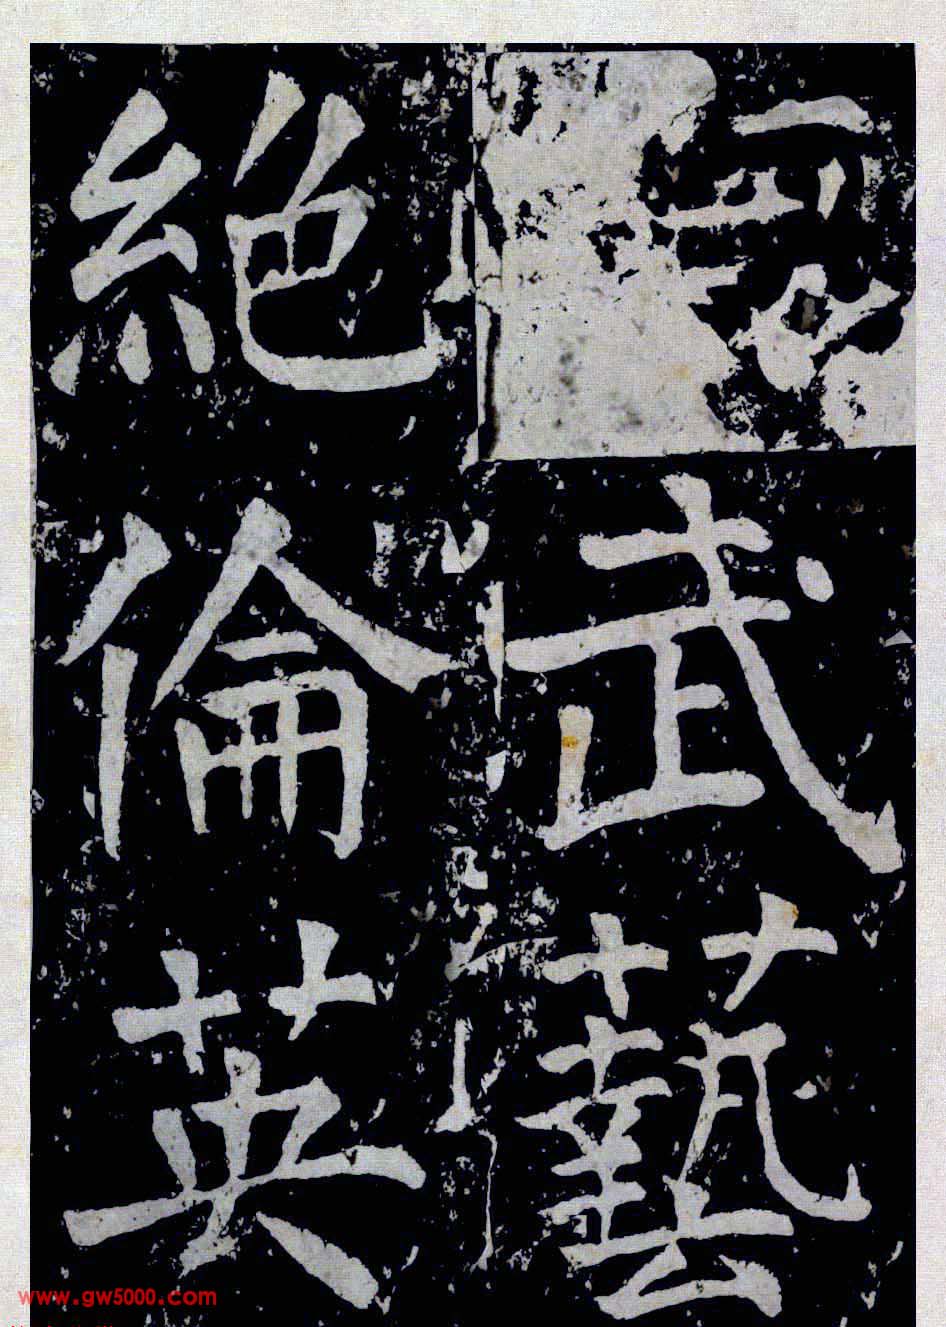 武藝
絕倫英
www.gw5000.com